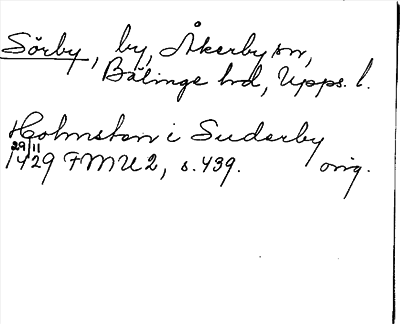 Sörby, by, Åkerby sn,
Bälinge hd, Upps. l.
Holmsten i Suderby
29/11
1429 FMU 2, s. 439. orig.